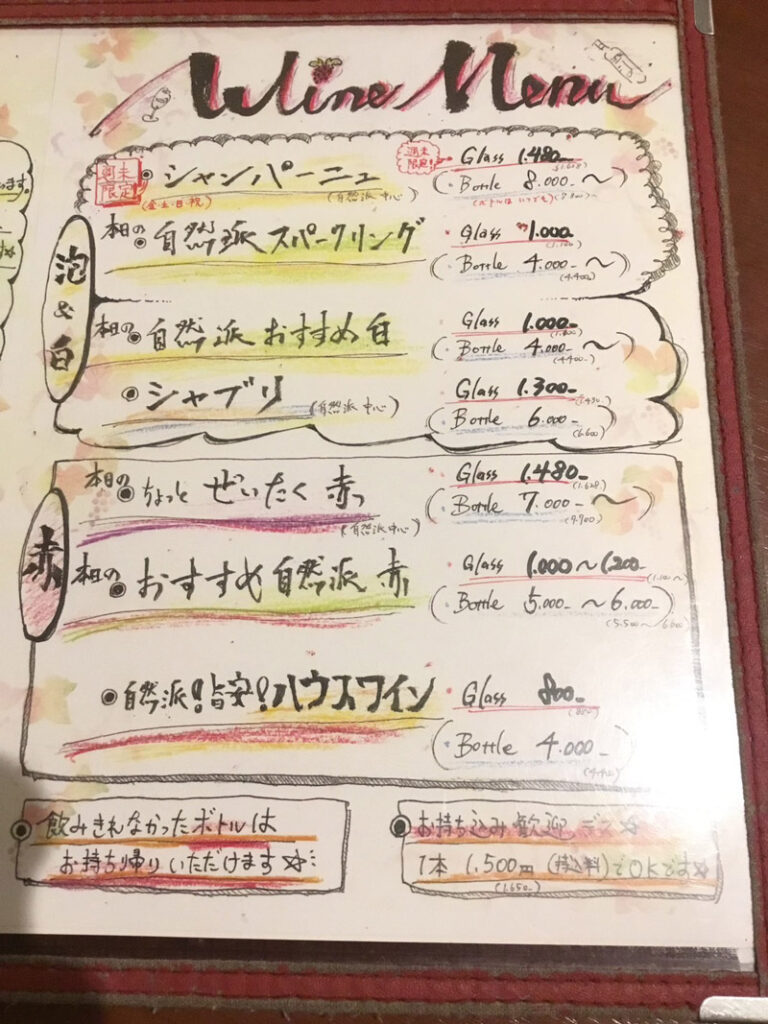 Wine Menu
泡&白
週末限定
シャンパーニュ
(金・土・日・祝)
(自然派中心)
週末限定!
Glass 1.480-
(1.628)
(・Bottle 8.000-〜)
(ボトルはいつでも)(8.800)〜
本日の 自然派 スパークリング
Glass 1.000-
(1.100)
(・Bottle 4.000-〜)
(4.400)
本日の 自然派 おすすめ 白
Glass 1.000-
(1.100)
(・Bottle 4.000-〜)
(4.400)
シャブリ (自然派中心)
Glass 1.300-
(1.430)
(Bottle 6.000-)
(6.600)
赤
本日の ちょっと ぜいたく 赤っ
(自然派中心)
Glass 1.480-
(1.628)
(・Bottle 7.000-〜)
(7.700)
本日の おすすめ 自然派 赤
Glass 1.000〜1.200-
(1.100〜)
(Bottle 5.000-〜6.000-)
(5.500〜6.600)
自然派!旨安!ハウスワイン
Glass 800-
(880)
(・Bottle 4.000-)
(4.400)
飲みきれなかったボトルは
お持ち帰りいただけます☆
お持ち込み歓迎デス☆
1本 1,500円(持込料)でOKです☆
(1.650-)